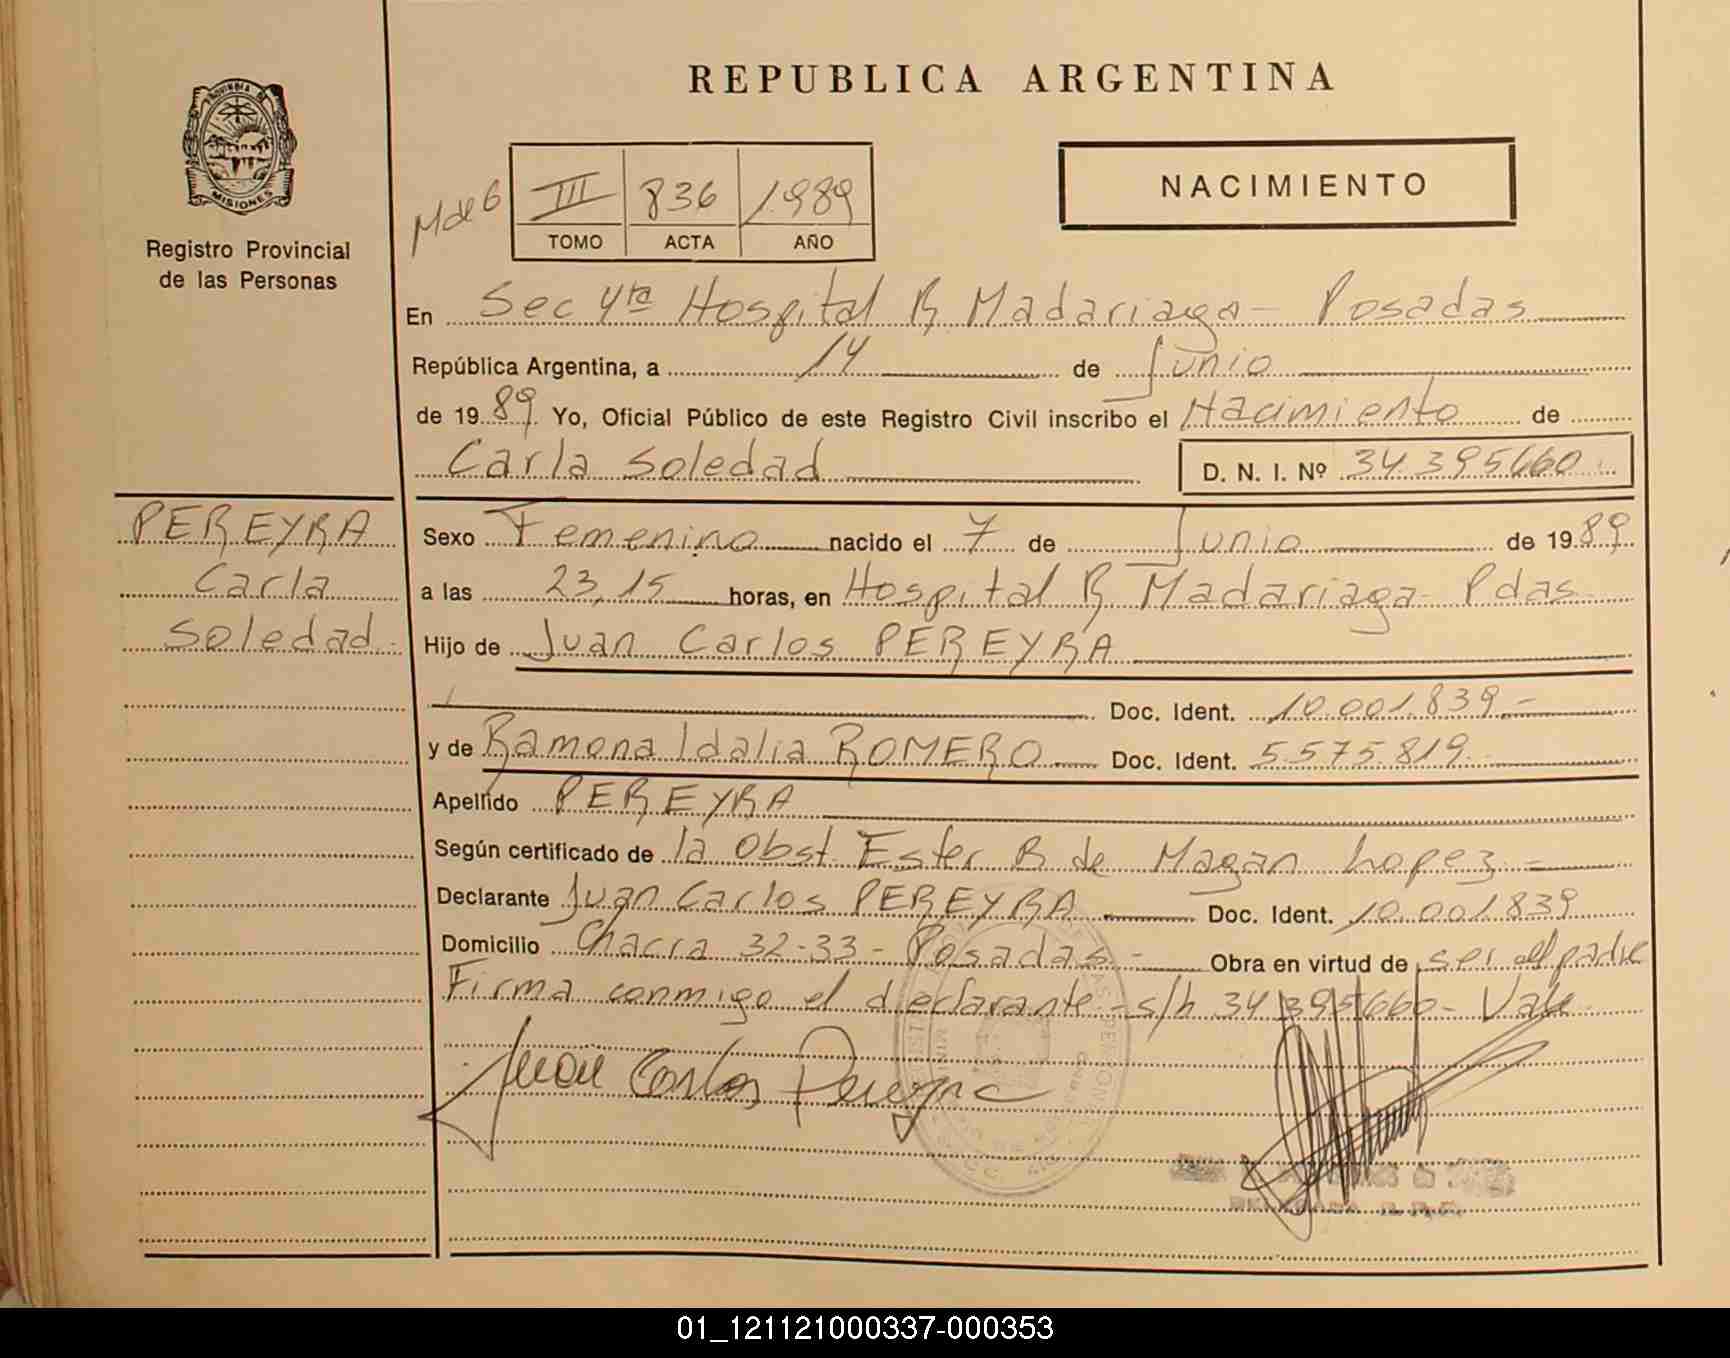 REPUBLICA ARGENTINA
PROVINCIA DE
MISIONES
Registro Provincial
de las Personas
M de 6
III 836 1989
TOMO ACTA AÑO
NACIMIENTO
En Sec 4ta Hospital R Madariaga - Posadas
República Argentina, a 14 de Junio
de 1989 Yo, Oficial Público de este Registro Civil inscribo el Nacimiento de
Carla Soledad D. N. I. Nº 34.395660
PEREYRA
Carla
Soledad.-
Sexo Femenino nacido el 7 de Junio de 1989
a las 23,15 horas, en Hospital R Madariaga - Pdas
Hijo de Juan Carlos PEREYRA
Doc. Ident. 10.001.839.-
y de Ramona Idalia ROMERO Doc. Ident. 5.575.819.-
Apellido PEREYRA
Según certificado de la Obst. Ester B de Magan Lopez.-
Declarante Juan Carlos PEREYRA Doc. Ident. 10.001839
Domicilio Chacra 32-33 - Posadas.- Obra en virtud de ser el padre
Firma conmigo el declarante - s/h 34.395660 - Vale
Juan Carlos Pereyra
01_121121000337-000353